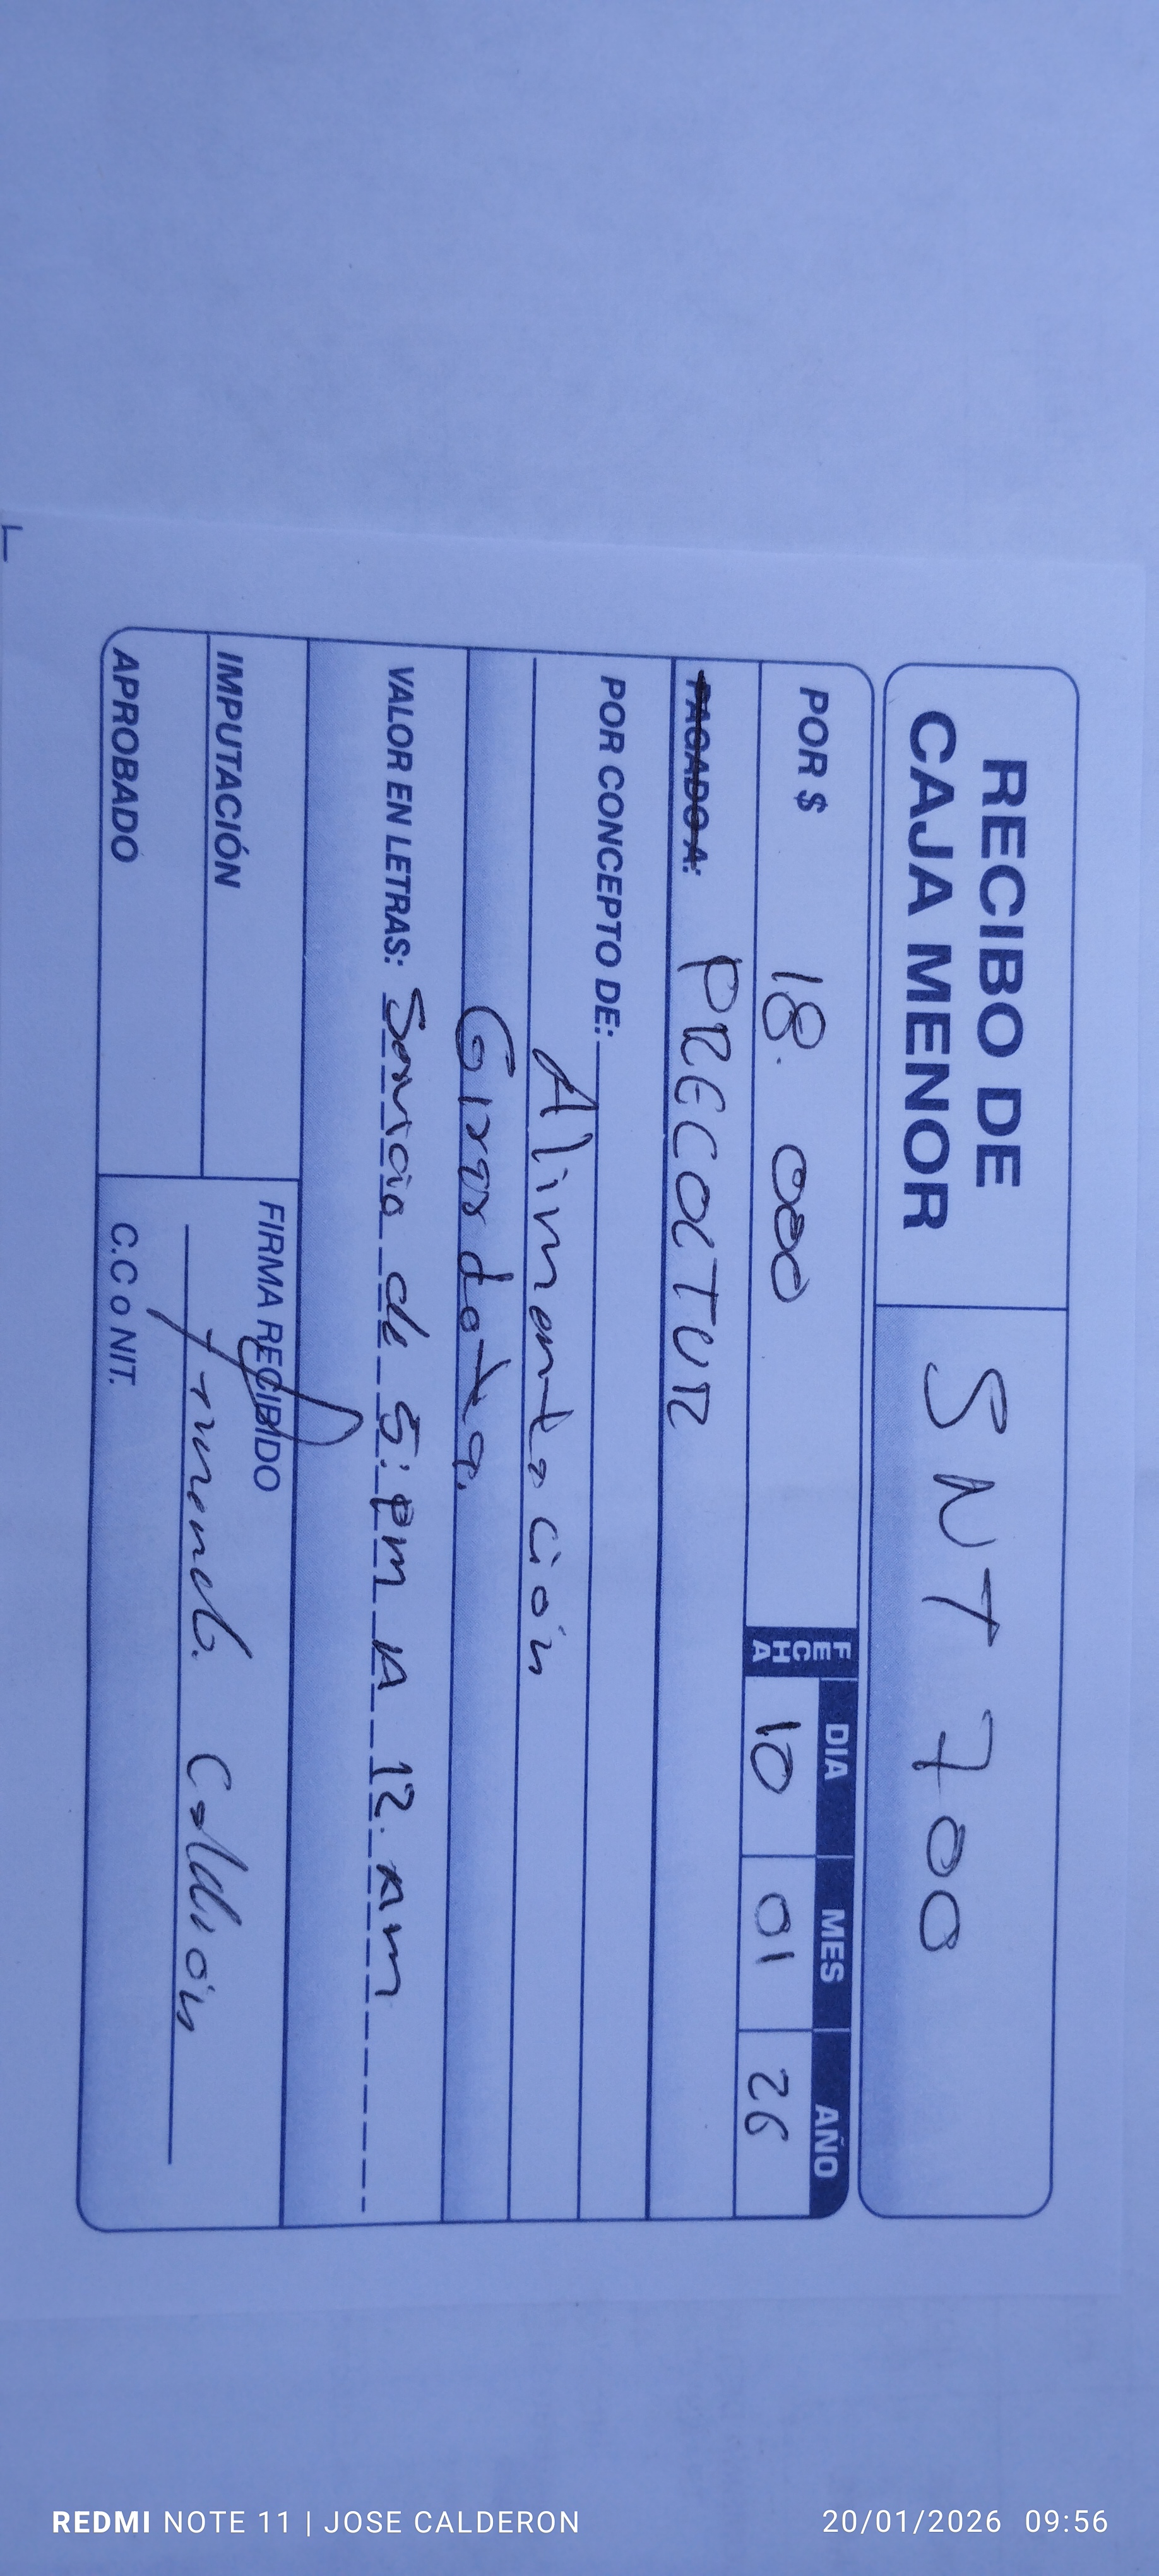 RECIBO DE
CAJA MENOR
SNT 700
POR $ 18.000
FECHA
DIA MES AÑO
10 01 26
PAGADO A: PRECOCTUR
POR CONCEPTO DE:
Alimentación
Girardota.
VALOR EN LETRAS: Servicio de 5:pm A 12.am
IMPUTACIÓN
FIRMA RECIBIDO
Calderón
APROBADO
C.C o NIT.
REDMI NOTE 11 | JOSE CALDERON
20/01/2026 09:56